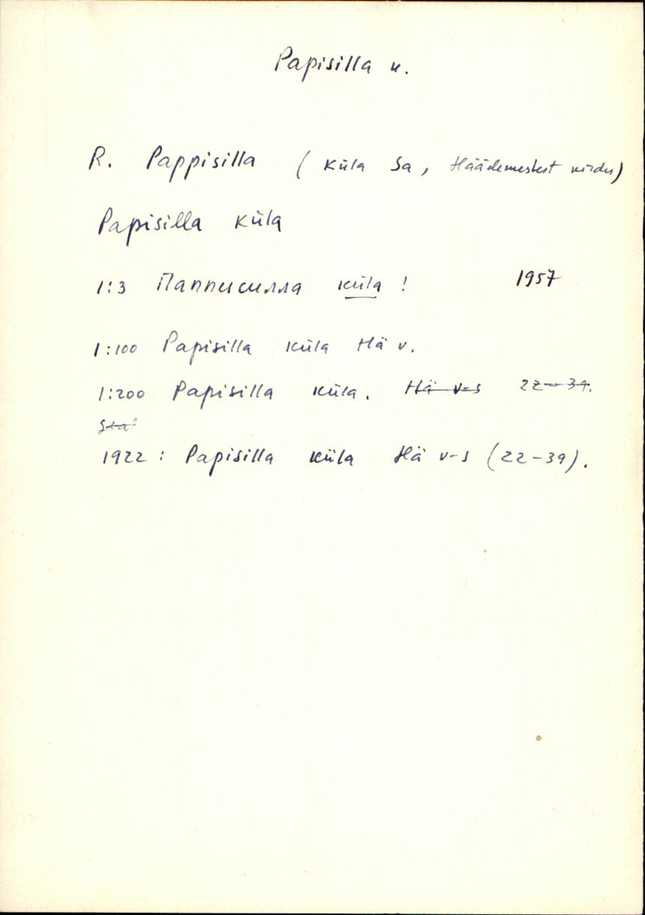 Papisilla k.
R. Pappisilla ( küla Sa, Häädemeestest
Papisilla küla
1:3 Папписилла küla ! 1957
1:100 Papisilla küla Hä v.
1:200 Papisilla küla. Hä v-s 22-39.
Sta
1922 : Papisilla küla Hä v-s (22-39).